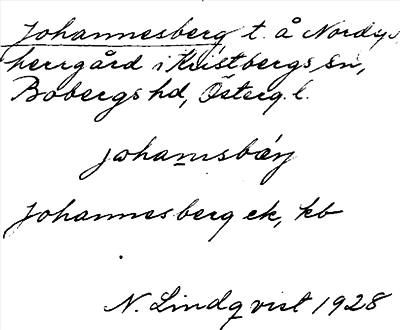 Johannesberg, t. å Nordys
herrgård i Kristbergs sn,
Bobergs hd, Österg. l.
johanisbærj
Johannesberg ek, kb
N. Lindqvist 1928